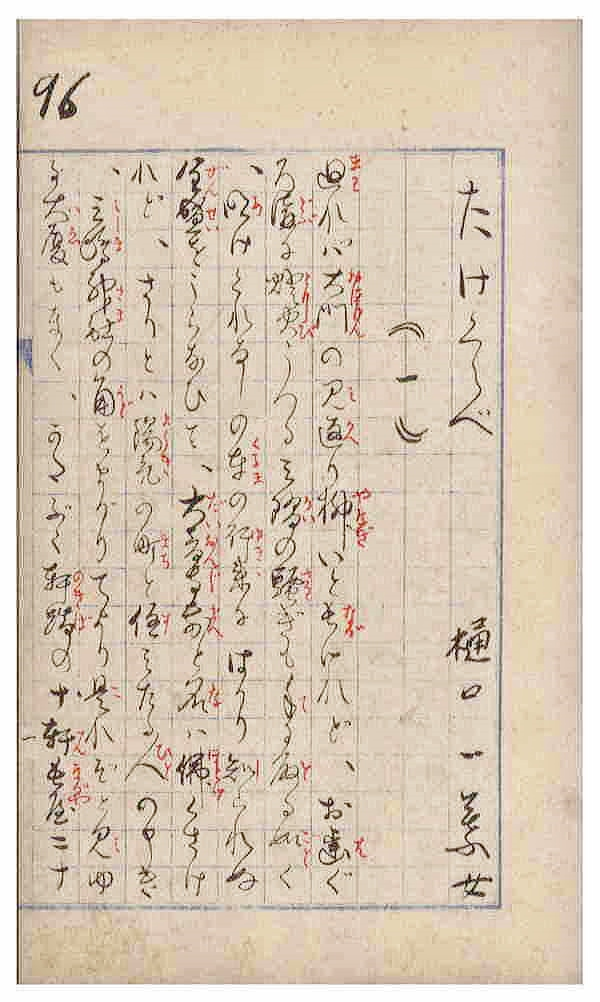 96
たけくらべ
樋口一葉女
（一）
廻れば大門の見返り柳いと長けれど、お歯ぐ
ろ溝に燈火うつる三階の騒ぎも手に取る如く
、明けくれなしの車の行来にはかり知られぬ
全盛をうらなひて、大音寺前と名は仏くさけ
れど、さりとは陽気の町と住みたる人の申き
、三嶋神社の角をまがりてより是れぞと見ゆ
る大厦もなく、かたぶく軒端の十軒長屋二十